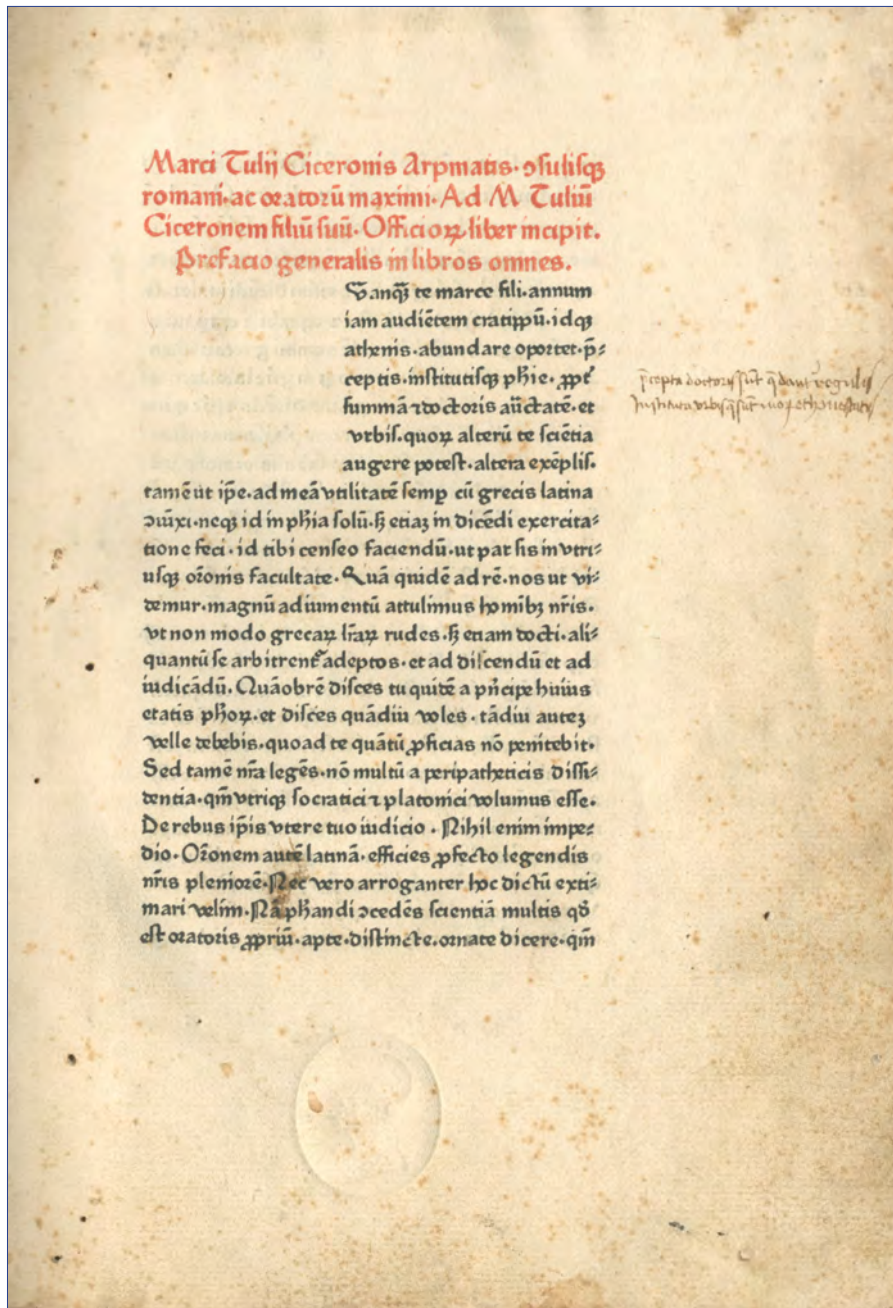 Marci Tulij Ciceronis Arpinatis· ↄsulisqꝫ
romani·ac oratorū maximi· Ad M Tuliū
Ciceronem filiū suū· Officioꝝ liber incipit.
Prefacio generalis in libros omnes.
Vanqꝫ te marce fili·annum
iam audiētem cratippū·idqꝫ
athenis·abundare oportet·p̄-
ceptis·institutisqꝫ phīe·ꝓpt̄
summā ⁊ doctoris aūctatē·et
vrbis·quoꝝ alterū te sciētia
augere potest·altera exēplis·
tamē ut ip̄e·ad meā vtilitatē semꝑ cū grecis latina
ↄiūxi·neqꝫ id in phīa solū·sꝫ etiaꝫ in dicēdi exercita-
tione feci·id tibi censeo faciendū·ut par sis in vtri-
usqꝫ or̄onis facultate· Quā quidē ad rē·nos ut vi-
demur·magnū adiumentū attulimus homībꝫ nr̄is·
vt non modo grecaꝝ lr̄aꝝ rudes·sꝫ etiam docti·ali-
quantū se arbitrent᷑ adeptos·et ad discendū et ad
iudicādū· Quāobrē disces tu quidē a pn̄cipe huius
etatis phōꝝ·et disces quādiu voles·tādiu auteꝫ
velle debebis·quoad te quātū ꝓficias nō penitebit·
Sed tamē nr̄a legēs·nō multū a peripatheticis dissi-
dentia·qm̄ vtriqꝫ socratici ⁊ platonici volumus esse·
De rebus ip̄is vtere tuo iudicio· Nihil enim impe-
dio· Or̄onem autē latinā·efficies ꝓfecto legendis
nr̄is pleniorē· Nec vero arroganter hoc dictū exti-
mari velim· Nā phāndi ↄcedēs scientiā multis qd̄
est oratoris ꝓpriū·apte·distincte·ornate dicere·qm̄
p̄cepta doctoris sūt
Instituta vrbis